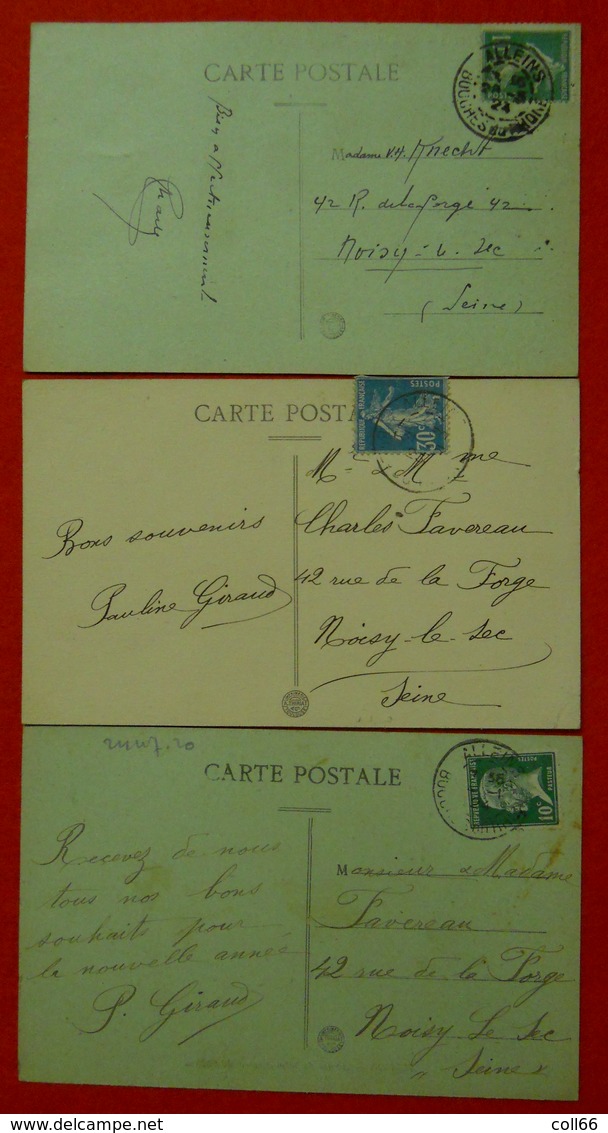 CARTE POSTALE
ALLEINS
24
BOUCHES DU RHONE
Bien affectueusement
Madame Knecht
42 R. de la Forge 42
Noisy-l-Sec
(Seine)
CARTE POSTALE
POSTES
REPUBLIQUE FRANÇAISE
30c
Bons souvenirs
Pauline Giraud
Mr & Mme
Charles Favereau
42 rue de la Forge
Noisy-le-Sec
Seine
CARTE POSTALE
ALLEINS
POSTES
REPUBLIQUE FRANÇAISE
PASTEUR
10c
Recevez de nous
tous nos bons
souhaits pour
la nouvelle année
P. Giraud
Monsieur & Madame
Favereau
42 rue de la Forge
Noisy Le Sec
Seine
coll66